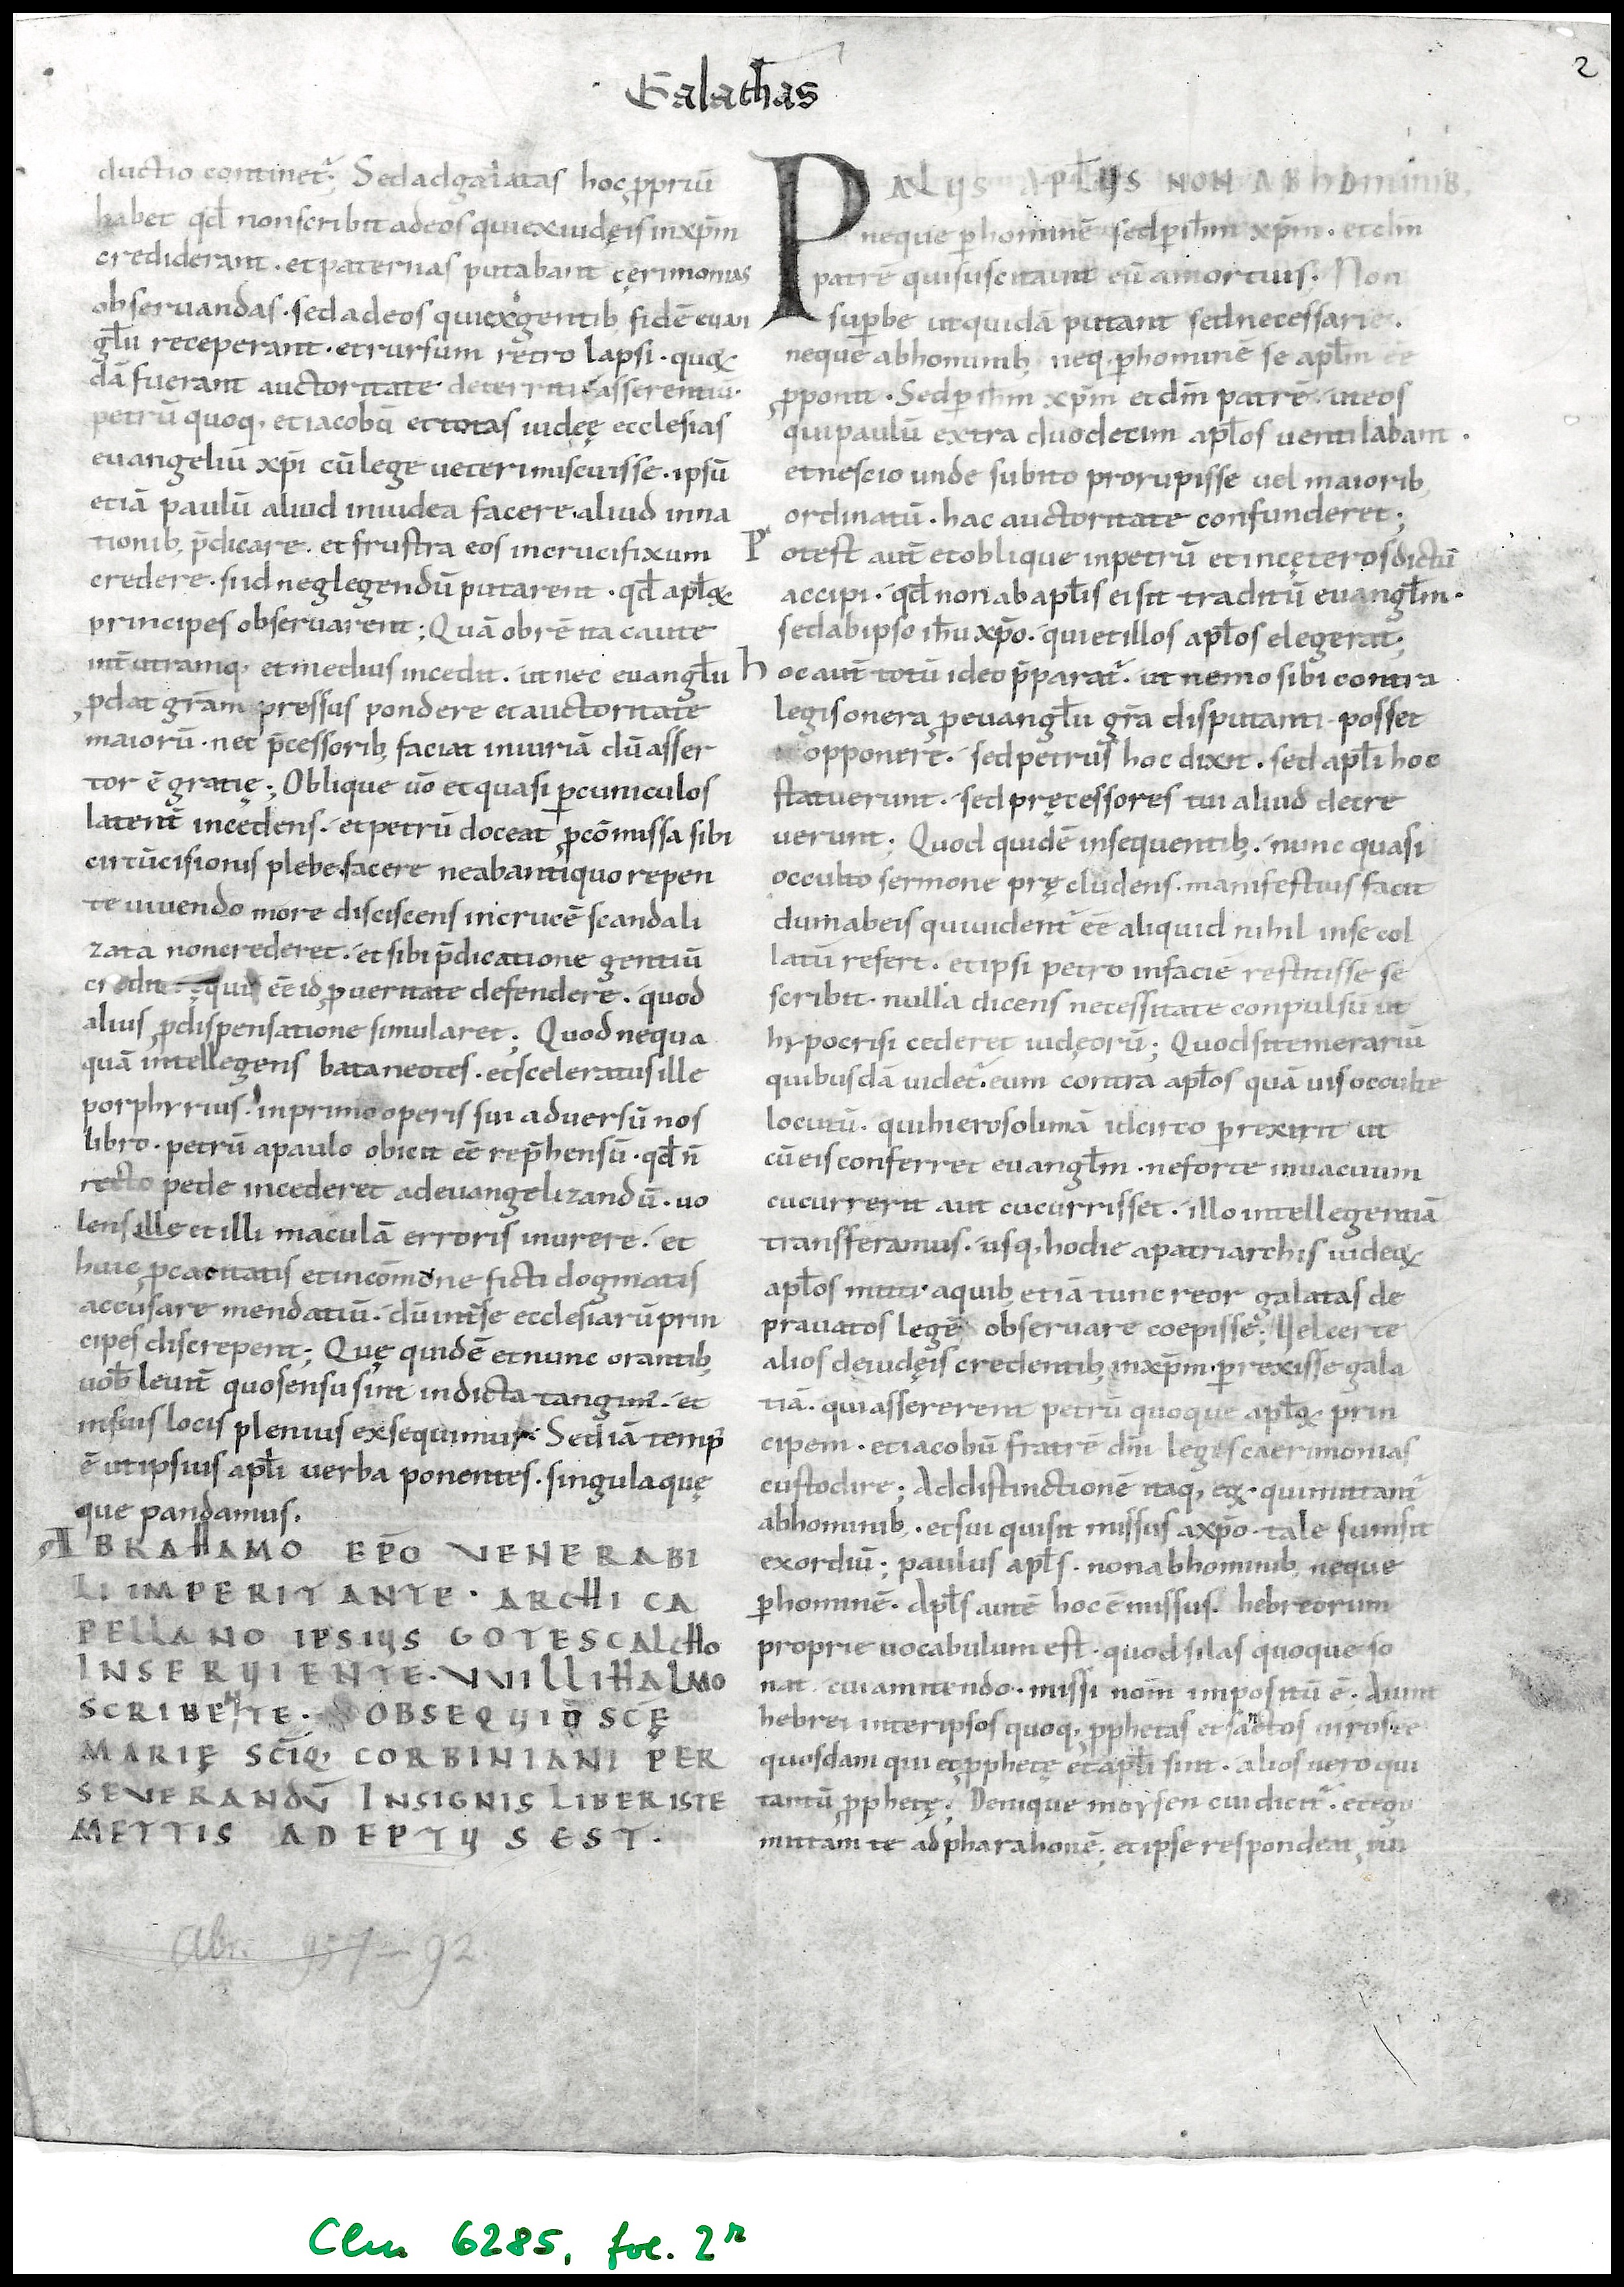 Galathas
2
ductio continet̃; Sed ad galatas hoc ꝓpriū
habet qđ non scribit ad eos qui ex iudęis in xp̄m
crediderant · et paternas putabant cęrimonias
observandas · sed ad eos qui ex gentib; fidē euan
gl̄iu receperant · et rursum retro lapsi · quoꝝ
dā fuerant auctoritate deterriti asserentiū ·
petrū quoq; et iacobū et totas iudęę ecclesias
euangeliū xp̄i cū lege ueteri miscuisse · ipsū
etiā paulū aliud in iudea facere · aliud in na
tionib; p̄dicare · et frustra eos in crucifixum
credere · si id neglegendū putarent · qđ apl̄oꝝ
principes observarent; Quā obrē ita caute
int̄ utramq; et medius incedit · ut nec euangl̄ii
ꝓdat gr̄am pressus pondere et auctoritate
maiorū · nec p̄cessorib; faciat iniuriā dū asser
tor ē gratię; Oblique ūo et quasi ꝑ cuniculos
latent̄ incedens · et petrū doceat ꝓ cōmissa sibi
circūcisionis plebe facere ne ab antiquo repen
te uiuendo more disciscens in crucē scandali
zata non crederet · et sibi p̄dicatione gentiū
credita ęquū eē id ꝓ ueritate defendere · quod
alius ꝓ dispensatione simularet; Quod nequa
quā intellegens bataneotes · et sceleratus ille
porphyrius · in primo operis sui adversū nos
libro · petrū a paulo obicit eē rep̄hensū · qđ ñ
recto pede incederet ad euangelizandū · uo
lens ille et illi maculā erroris inurere · et
huic ꝓcacitatis et in cōmone ficti dogmatis
accusare mendatiū · dū int̄ se ecclesiarū prin
cipes discrepent; Quę quidē et nunc orantib;
uob̄ levit̄ quo sensu sint indicta tangim̃ · et
in suis locis plenius exsequimur · Sed iā temp̃
ē ut ipsius apl̄i verba ponentes · singula quę
que pandamus.
ABRAHAMO EP̄O VENERABI
LI IMPERITANTE · ARCHI CA
PELLANO IPSIUS GOTESCALCHO
INSERUIENTE · VVILLIHALMO
SCRIBENTE · OBSEQUIO SCĘ̄
MARIĘ SC̄IQ; CORBINIANI PER
SEVERANDŪ INSIGNIS LIBER ISTE
METTIS ADEPTUS EST.
Abr. 957–92
PAULUS APL̄US NON AB HOMINIB;
neque ꝑ hominē sed ꝑ ih̄m xp̄m · et dm̄
patrē qui suscitauit eū a mortuis · Non
suꝑbe ut quidā putant sed necessarie ·
neque ab hominib; neq; ꝑ hominē se apl̄m eē
ꝓponit · Sed ꝑ ih̄m xp̄m et dm̄ patrē · ut eos
qui paulū extra duodecim apl̄os uentilabant ·
et nescio unde subito prorupisse uel maiorib;
ordinatū · hac auctoritate confunderet;
Potest aut̄ et oblique in petrū et in cęteros dictū
accipi · qđ non ab apl̄is ei sit traditū euangl̄im ·
sed ab ipso ih̄u xp̄o · qui et illos apl̄os elegerat;
hoc aut̄ totū ideo p̄parat̃ · ut nemo sibi contra
legis onera ꝓ euangl̄ii gr̄a disputanti · posset
opponere · sed petrus hoc dixit · sed apl̄i hoc
statuerunt · sed pręcessores tui aliud decre
verunt; Quod quidē in sequentib; · nunc quasi
occulto sermone pręcludens · manifestius facit
dum ab eis qui uident̃ eē aliquid nihil in se col
latū refert · et ipsi petro in faciē restitisse se
scribit · nulla dicens necessitate conpulsū ut
hypocrisi cederet iudęorū; Quod si temerariū
quibusdā uidet̃ · eum contra apl̄os quā uis occulte
locutū · qui hierosolimā idcirco ꝑrexerit ut
cū eis conferret euangl̄im · ne forte in uacuum
cucurrerit aut cucurrisset · illo intellegentiā
transferamus · usq; hodie a patriarchis iudeoꝝ
apl̄os mitti · a quib; etiā tunc reor galatas de
pravatos legē observare coepisse · Uel certe
alios de iudęis credentib; in xp̄m · ꝑrexisse gala
tiā · qui assererent petrū quoque apl̄oꝝ prin
cipem · et iacobū fratrē dn̄i leges caerimonias
custodire; Ad distinctionē itaq; eoꝝ · qui mittant̃
ab hominib; · et sui qui sit missus a xp̄o · tale sumsit
exordiū; paulus apl̄s · non ab hominib; neque
ꝑ hominē · Apl̄s autē hoc ē missus · hebreorum
proprie uocabulum est · quod silas quoque so
nat · cui a mitendo · missi nom̄ impositū ē · Aiunt
hebrei inter ipsos quoq; ꝓphetas et sanctos uiros eē
quosdam qui et ꝓphetę et apl̄i sint · alios uero qui
tantū ꝓphetę · Denique moysen cui dicit̃ · et ego
mittam te ad pharahonē; et ipse respondeat
Clm 6285, fol. 2r